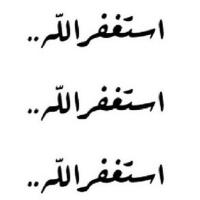 استغفر اللّه..
استغفر اللّه..
استغفر اللّه..